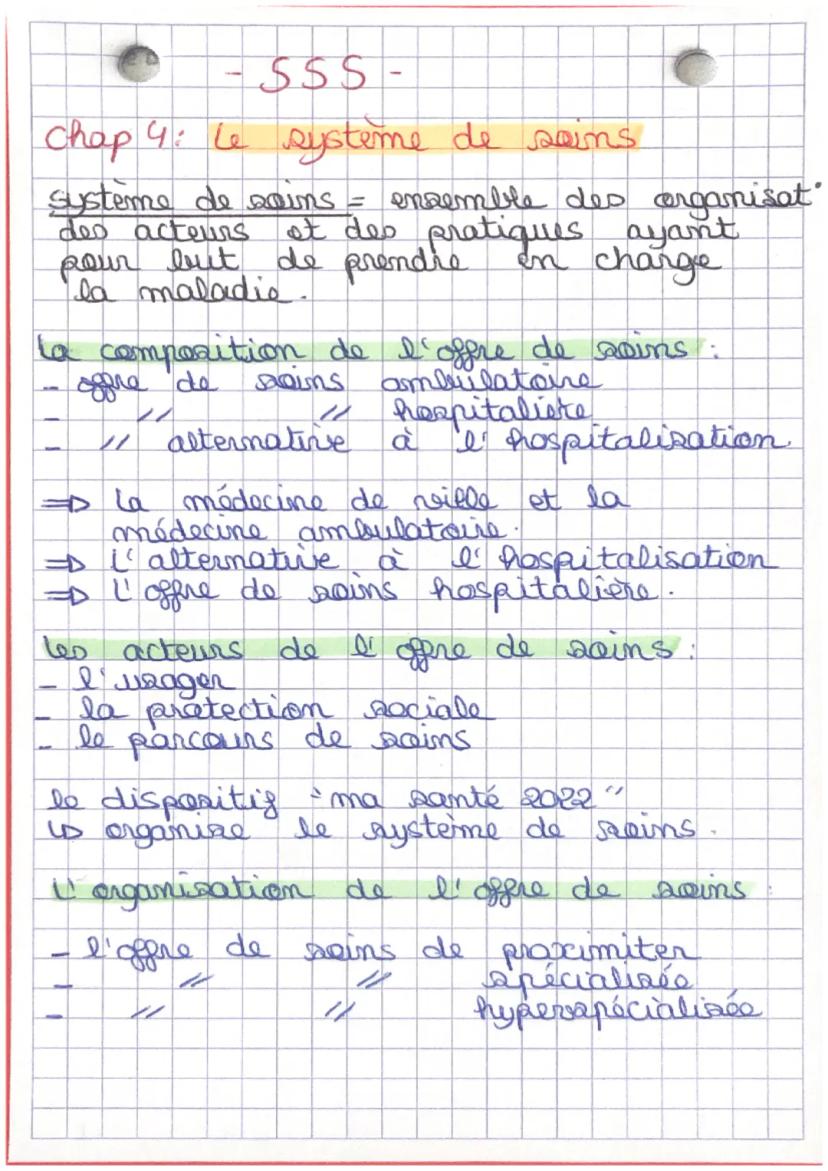 - SSS -
Chap 4: Le système de soins
système de soins = ensemble des organisat°
des acteurs et des pratiques ayant
pour but de prendre en charge
la maladie.
La composition de l'offre de soins :
- offre de soins ambulatoire
- // // hospitalière
- // alternative à l'hospitalisation.
⇒ La médecine de ville et la
médecine ambulatoire.
⇒ L'alternative à l'hospitalisation
⇒ L'offre de soins hospitalière.
Les acteurs de l'offre de soins :
- l'usager
- la protection sociale
- le parcours de soins
le dispositif "ma santé 2022"
↳ organise le système de soins.
L'organisation de l'offre de soins :
- l'offre de soins de proximiter
- // // spécialisée
- // // hyperspécialisée